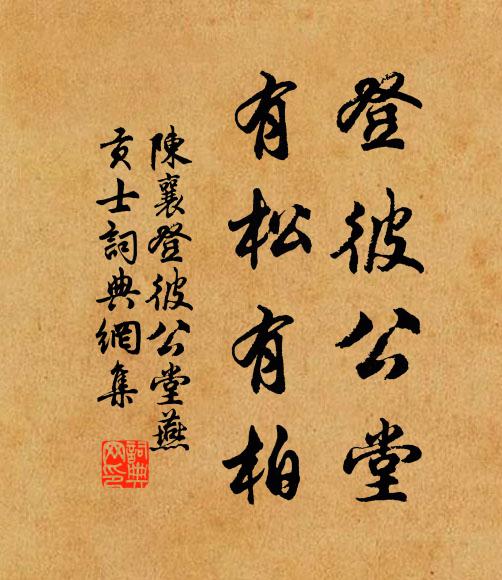 登彼公堂
有松有柏
陳襄登彼公堂燕
貢士詞典網集
詞典
网印